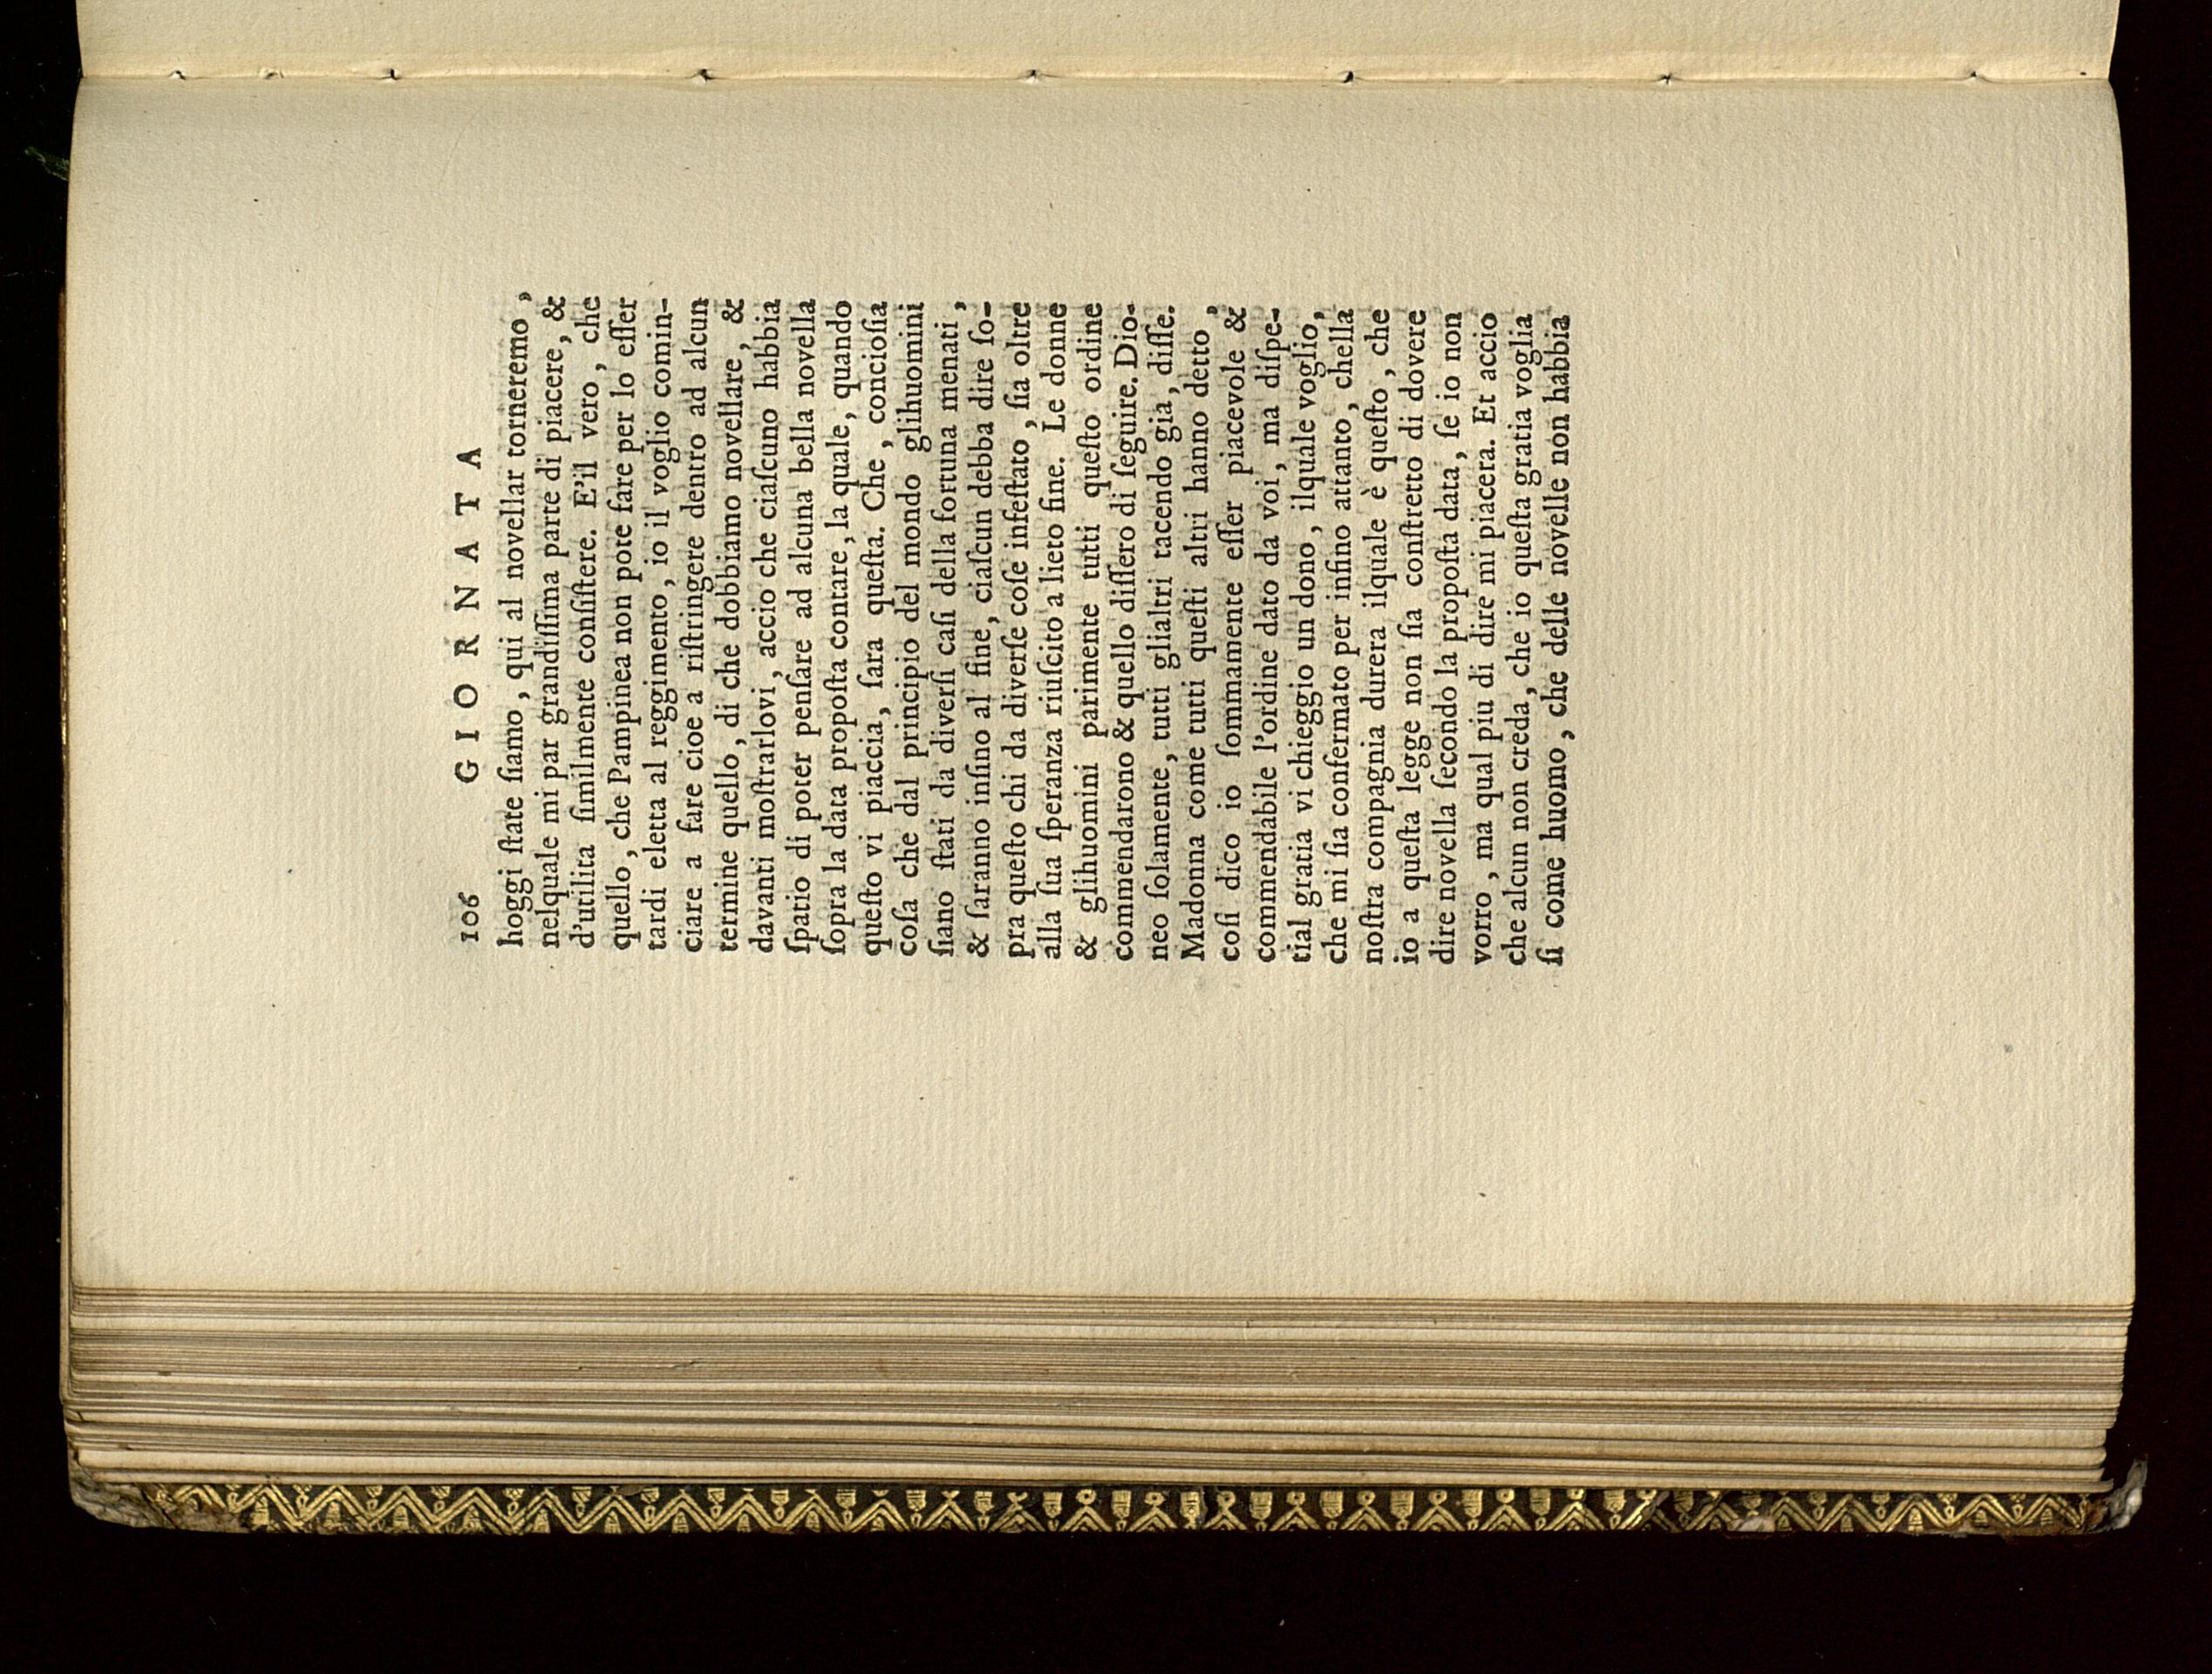 106 GIORNATA
hoggi ſtate ſiamo, qui al novellar torneremo,
nelquale mi par grandiſſima parte di piacere, &
d'utilita ſimilmente conſiſtere. E'il vero, che
quello, che Pampinea non pote fare per lo eſſer
tardi eletta al reggimento, io il voglio comin-
ciare a fare cioe a riſtringere dentro ad alcun
termine quello, di che dobbiamo novellare, &
davanti moſtrarlovi, accio che ciaſcuno habbia
ſpatio di poter penſare ad alcuna bella novella
ſopra la data propoſta contare, la quale, quando
queſto vi piaccia, ſara queſta. Che, concioſia
coſa che dal principio del mondo glihuomini
ſiano ſtati da diverſi caſi della fortuna menati,
& ſaranno inſino al fine, ciaſcun debba dire ſo-
pra queſto chi da diverſe coſe infeſtato, ſia oltre
alla ſua ſperanza riuſcito a lieto fine. Le donne
& glihuomini parimente tutti queſto ordine
commendarono & quello diſſero di ſeguire. Dio-
neo ſolamente, tutti glialtri tacendo gia, diſſe.
Madonna come tutti queſti altri hanno detto,
coſi dico io ſommamente eſſer piacevole &
commendabile l'ordine dato da voi, ma diſpe-
tial gratia vi chieggio un dono, ilquale voglio,
che mi ſia confermato per infino attanto, chella
noſtra compagnia durera ilquale è queſto, che
io a queſta legge non ſia conſtretto di dovere
dire novella ſecondo la propoſta data, ſe io non
vorro, ma qual piu di dire mi piacera. Et accio
che alcun non creda, che io queſta gratia voglia
ſi come huomo, che delle novelle non habbia